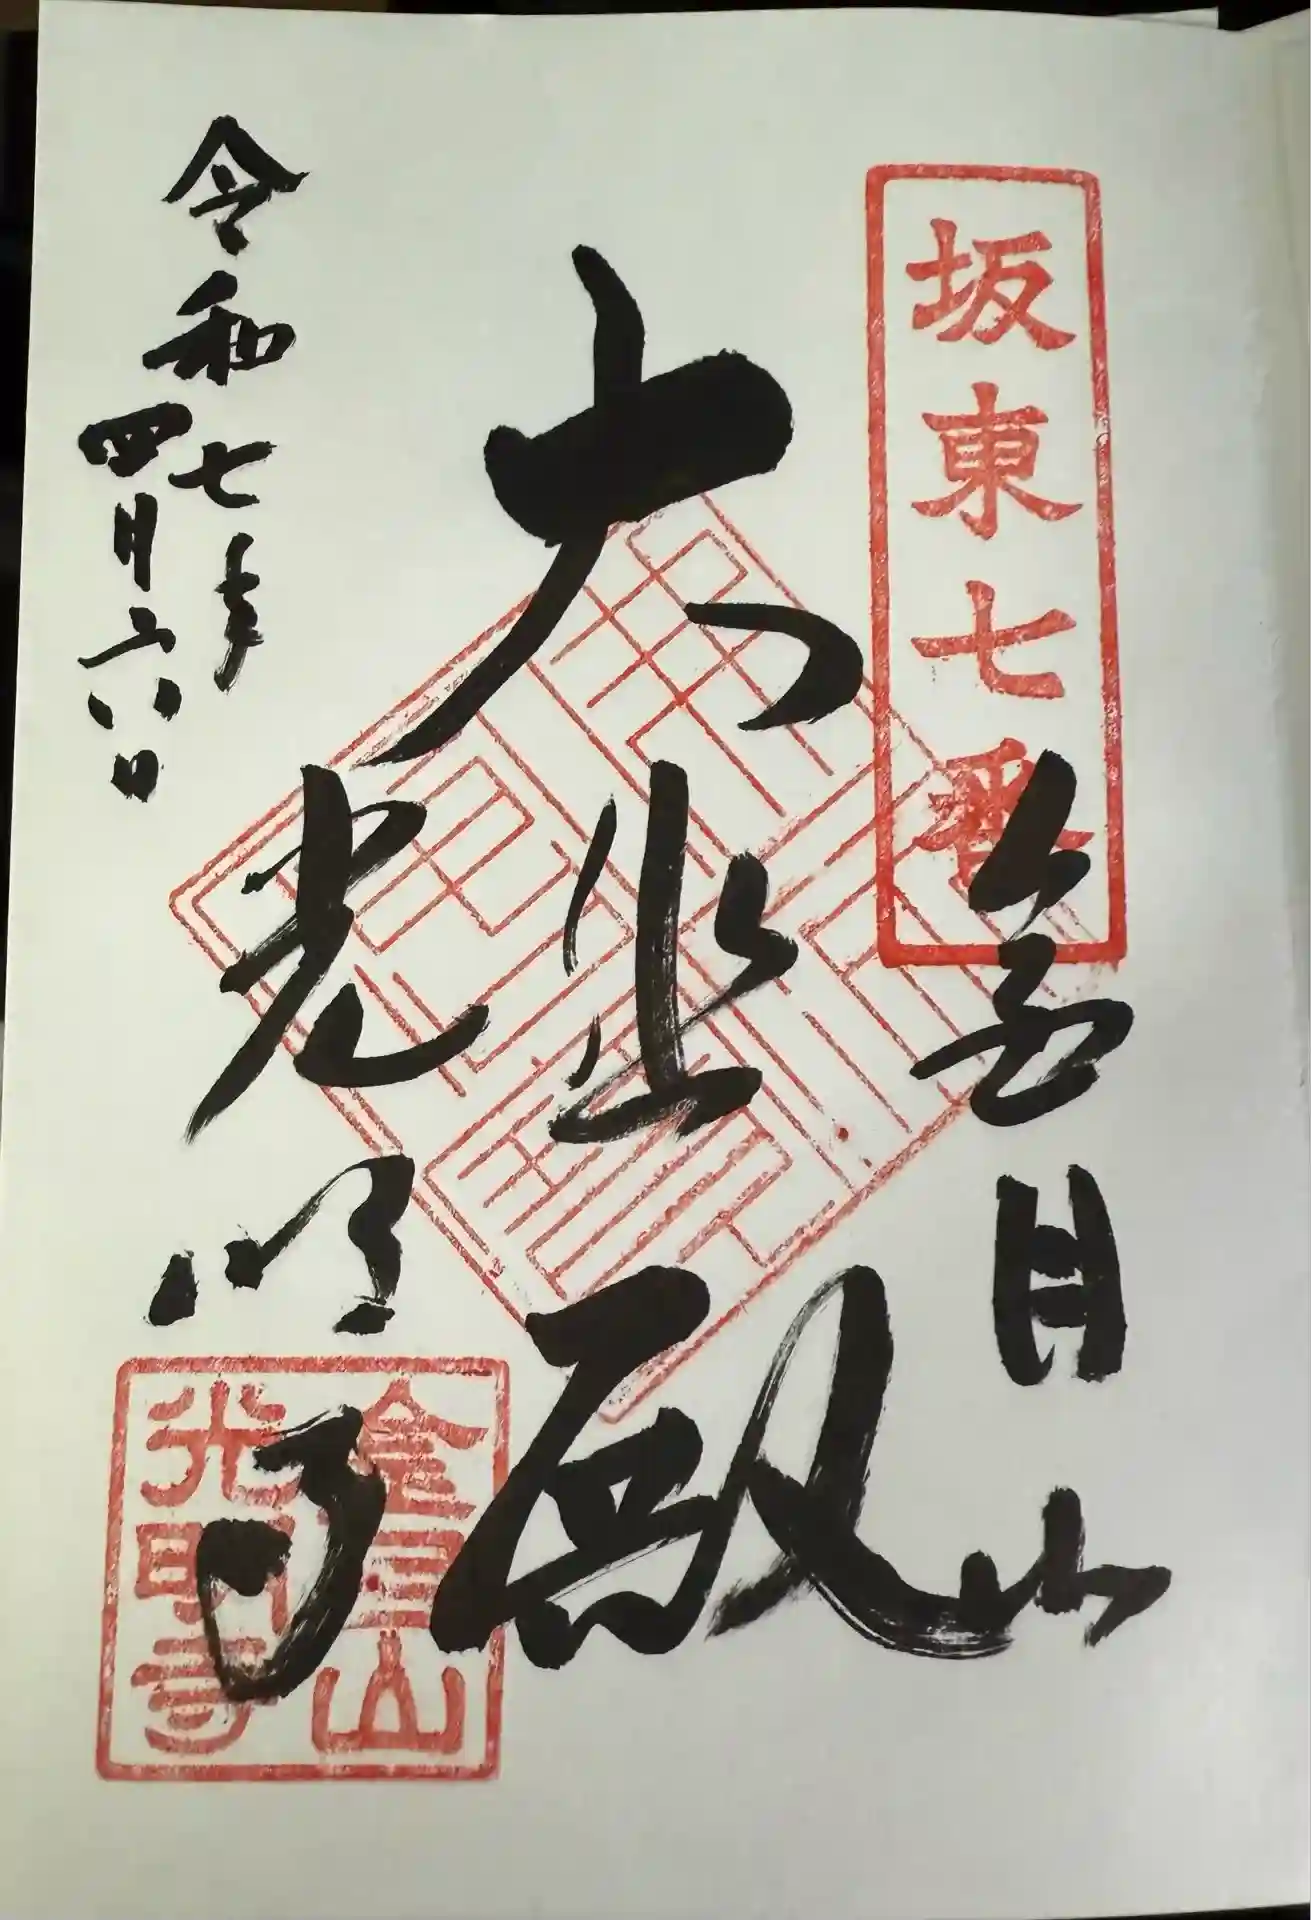 坂東七番
金目山
大悲殿
光明寺
令和七年
四月六日
金目山
光明寺